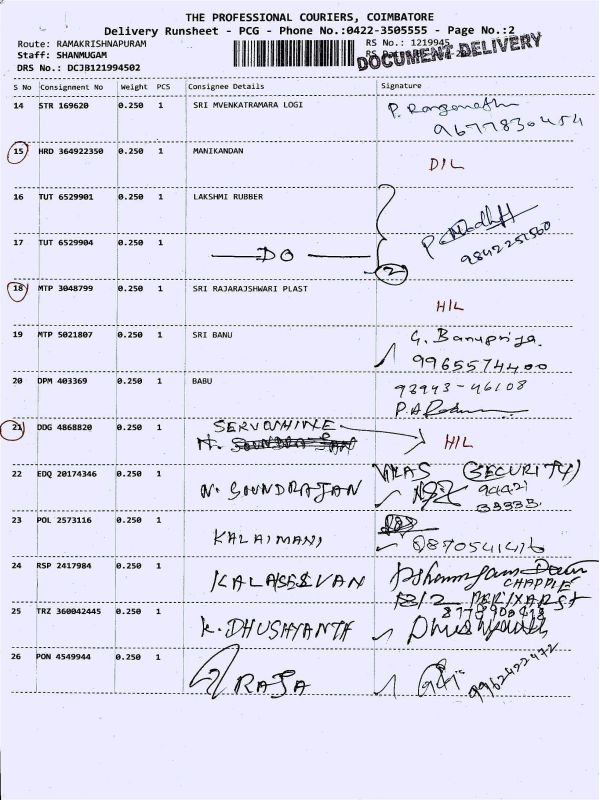 THE PROFESSIONAL COURIERS, COIMBATORE
Delivery Runsheet - PCG - Phone No.:0422-3505555 - Page No.:2
Route: RAMAKRISHNAPURAM
RS No.: 1219945
Staff: SHANMUGAM
DOCUMENT DELIVERY
DRS No.: DCJB121994502
S No Consignment No Weight PCS Consignee Details Signature
14 STR 169620 0.250 1 SRI MVENKATRAMARA LOGI P. Ranganath
9677830454
15 HRD 364922350 0.250 1 MANIKANDAN D/L
16 TUT 6529901 0.250 1 LAKSHMI RUBBER
17 TUT 6529904 0.250 1 DO
9842251560
2
18 MTP 3048799 0.250 1 SRI RAJARAJSHWARI PLAST H/L
19 MTP 5021807 0.250 1 SRI BANU G. Banupriya.
9965574400
20 DPM 403369 0.250 1 BABU 93943-46108
21 DDG 4868820 0.250 1 SERVOSHINE H/L
22 EDQ 20174346 0.250 1 N. SOUNDRAJAN VIKAS (SECURITY)
23 POL 2573116 0.250 1 KALAIMANI
9870541416
24 RSP 2417984 0.250 1 KALAISELVAN
CHAPPLE
25 TRZ 360042445 0.250 1 K. DHUSHYANTH
26 PON 4549944 0.250 1 RAJA 9962422472